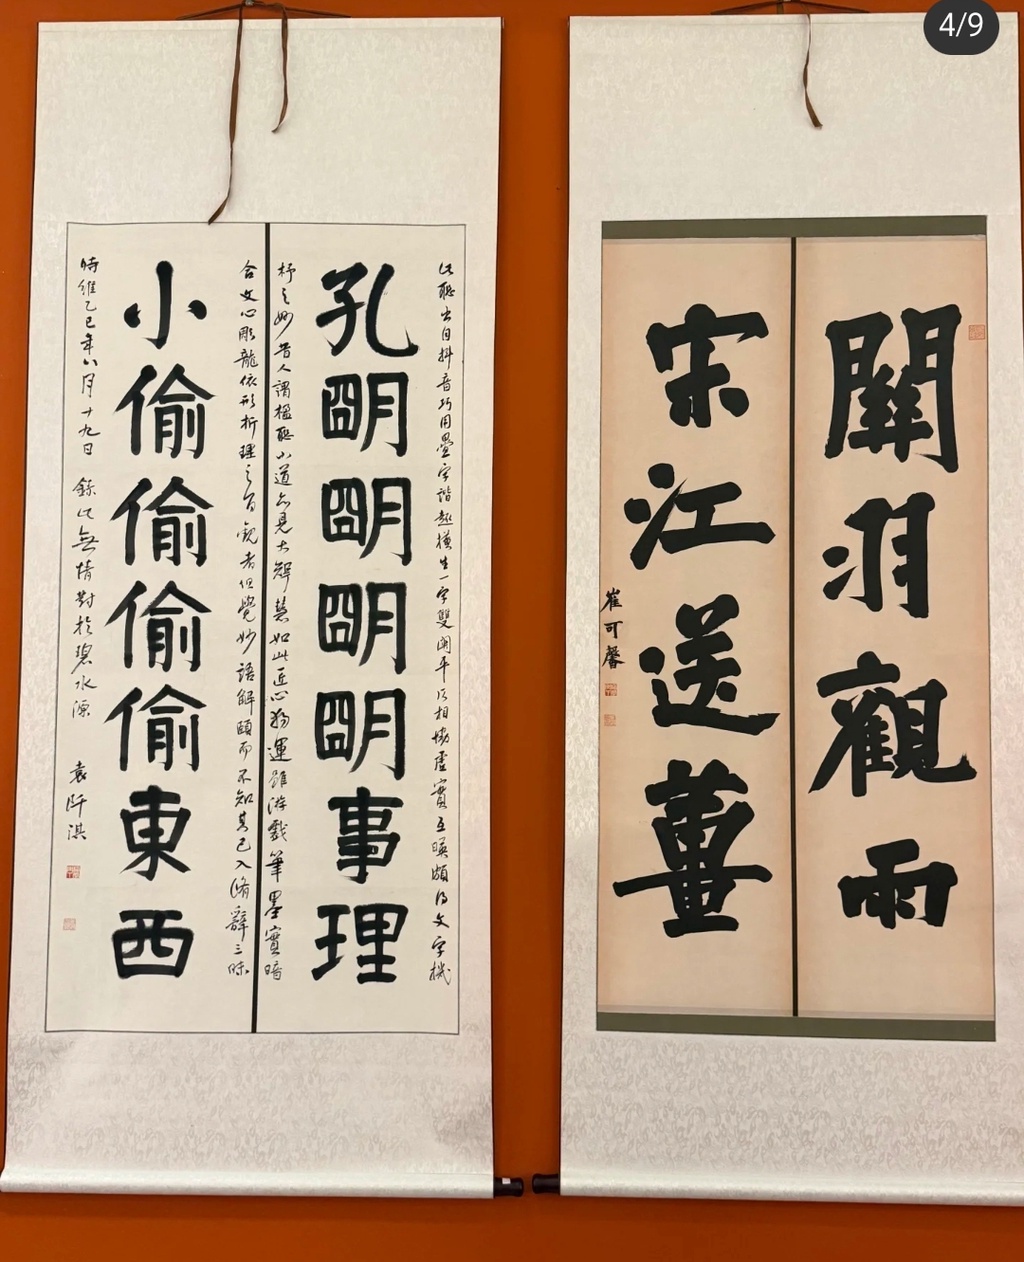 4/9
關羽觀雨
宋江送薑
崔可馨
此聯出自抖音巧用疊字諧趣橫生一字雙關平仄相協虛實互映頗得文字機
孔朙朙朙朙事理
杼之妙昔人謂楹聯小道亦見大智慧如此匠心獨運雖游戲筆墨實暗
合文心彫龍依形析理之旨觀者但覺妙語解頤而不知其已入脩辭三昧
小偷偷偷偷東西
時維乙巳年八月十九日 錄此無情對於碧水源 袁阡淇